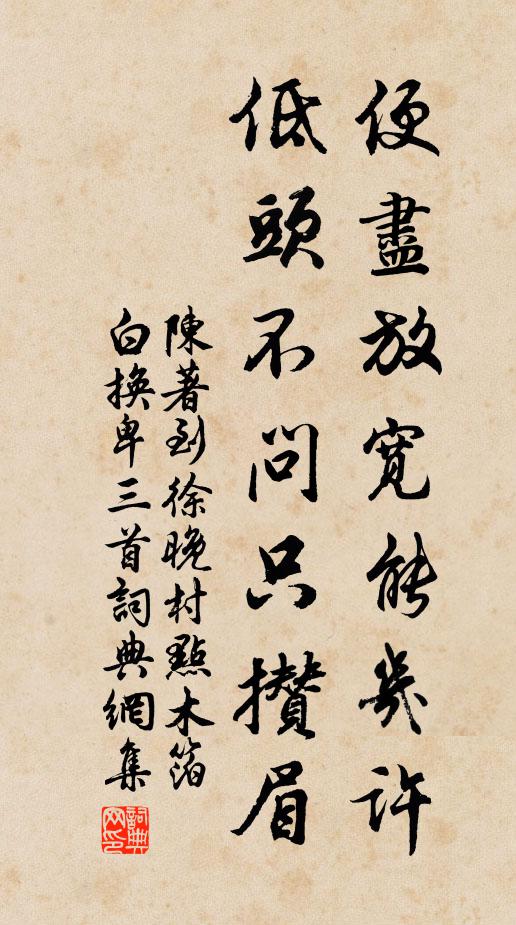 便盡放寬能幾許
低頭不問只攢眉
陳著到徐晚村點木箔
白換卑三首詞典網集
詞典网印